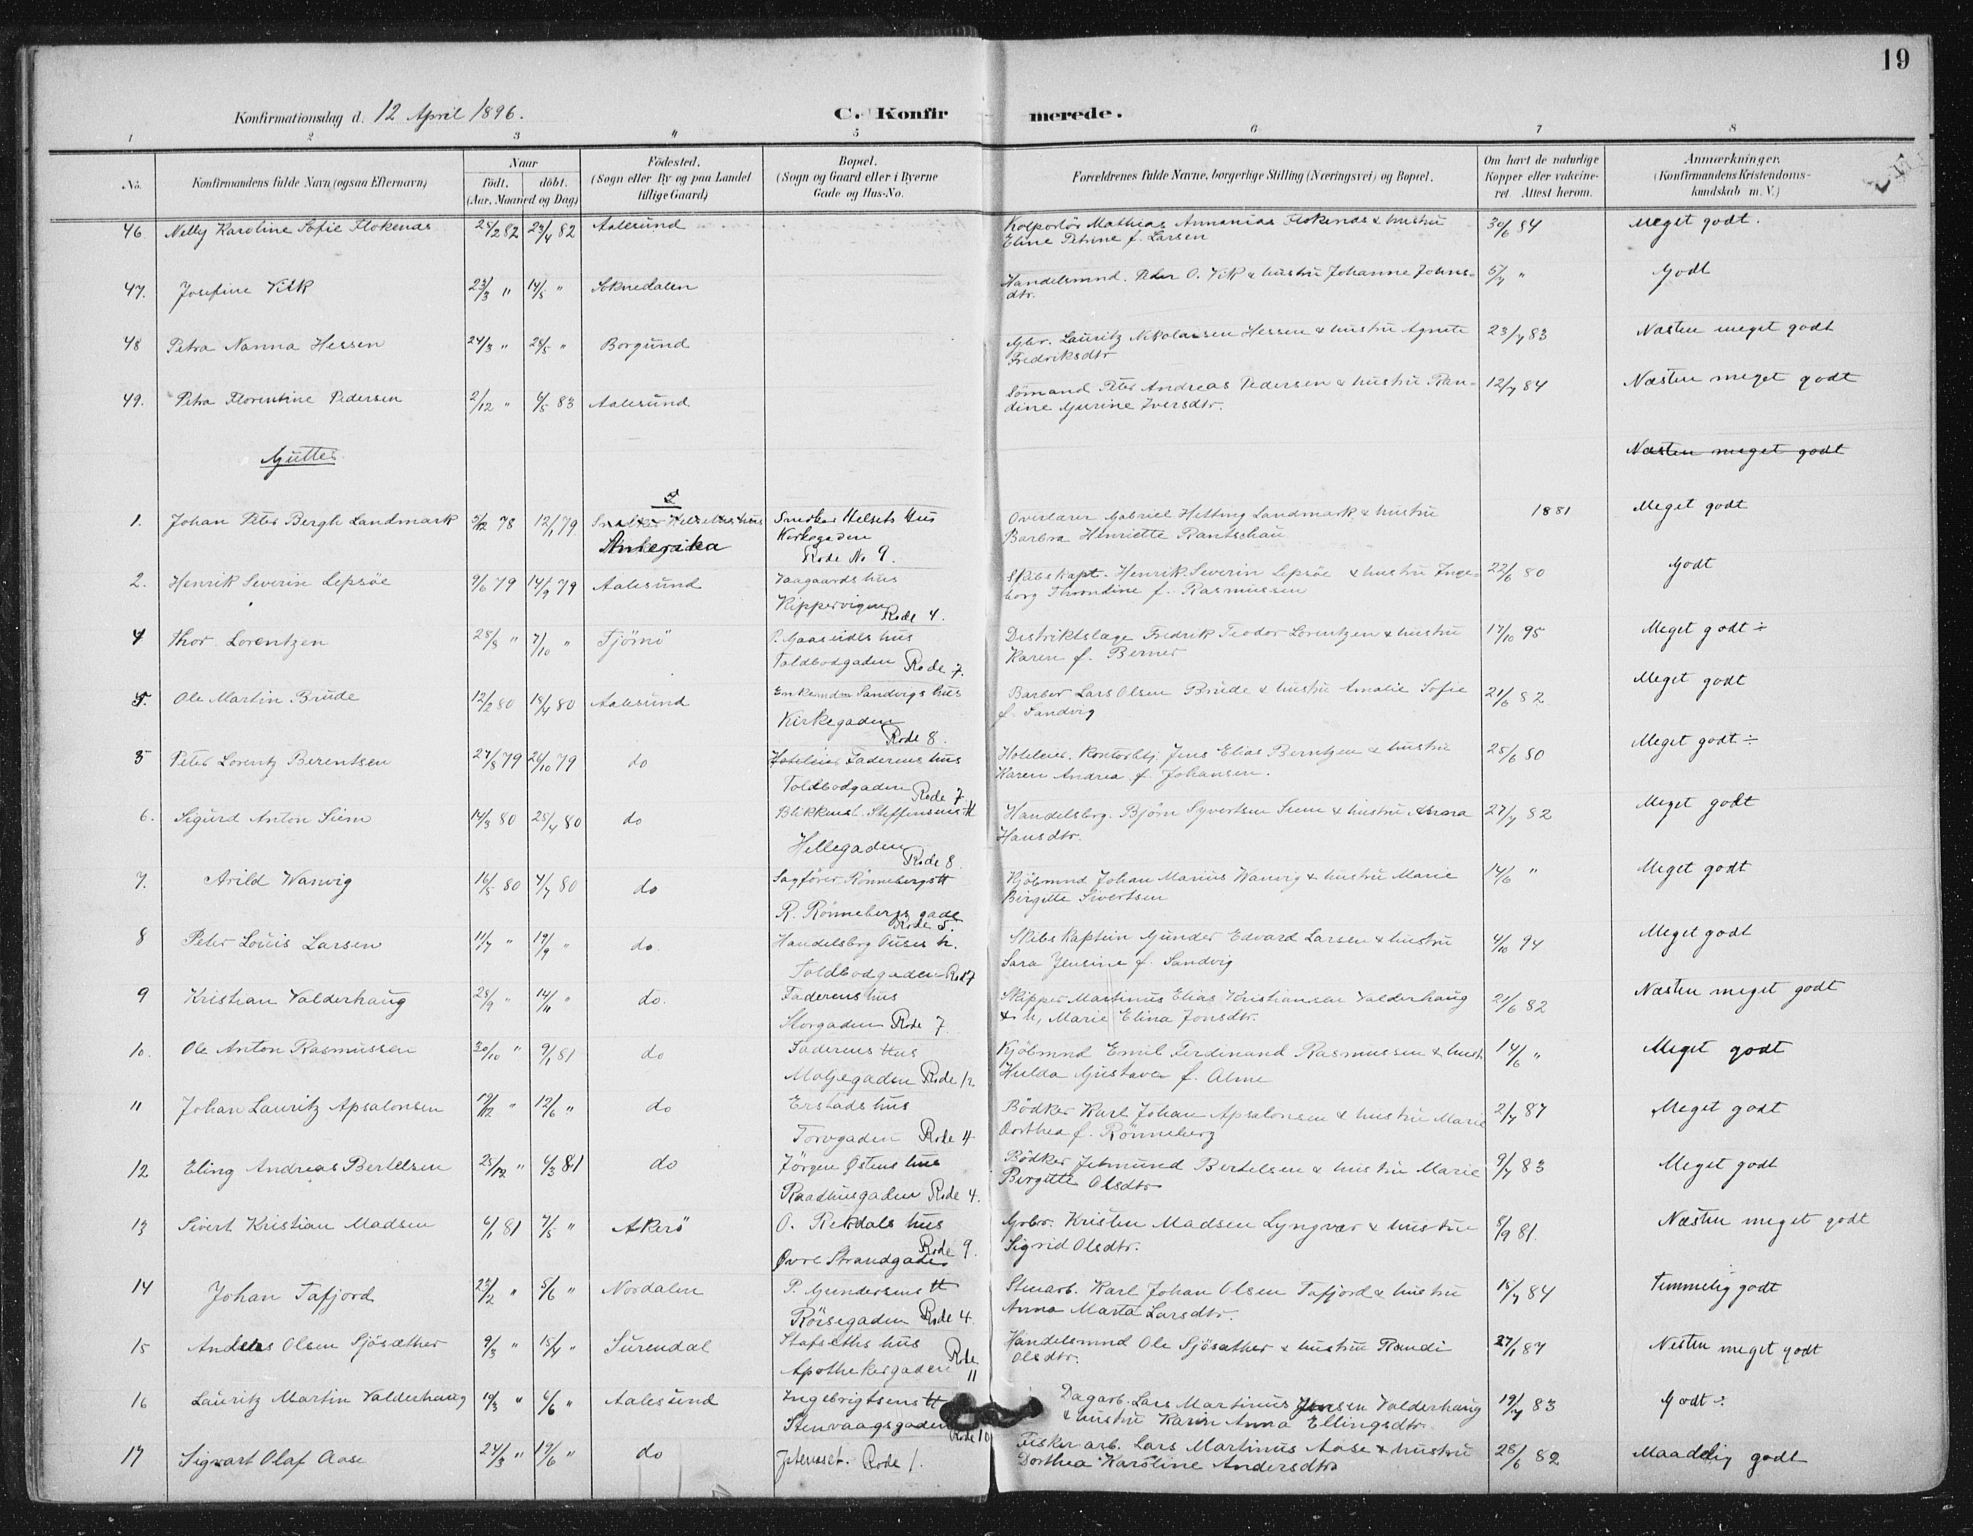 19
Konfirmationsdag d. 12 April 1896.
C. Konfir merede.
1 2 3 " 5 6 7 8
No.
Konfirmandens fulde Navn (ogsaa Efternavn)
Naar
født. døbt.
(Aar, Maaned og Dag)
Fødested.
(Sogn eller By og paa Landet
tillige Gaard)
Bopæl.
(Sogn og Gaard eller i Byerne
Gade og Hus-No.
Forældrenes fulde Navne, borgerlige Stilling (Næringsvei) og Bopæl.
Om havt de naturlige
Kopper eller vakcine-
ret. Attest herom.
Anmærkninger.
(Konfirmandens Kristendoms-
kundskab m. V.)
46 Nelly Karoline Sofie Flokenes 82 23/4 82 Aalesund Kolportör Mathias Annanias Flokenes & hustru 30/6 84 Meget godt.
Eline Petrine f. Larsen
47. Josefine Vik 23/3 " 14/5 " Soknedalen Handelsmnd. Peder O. Vik & hustru Johanne Johns- 5/7 " Godt
dtr.
48 Petra Nanna Hessen 24/3 " 28/5 " Borgund Gbr. Lauritz Nikolaisen Hessen & hustru Agnete 23/7 83 Næsten meget godt
Fredriksdtr
49. Petra Florentine Pedersen 2/12 " 6/5 83 Aalesund Sömand Peter Andreas Pedersen & hustru Ran- 12/7 84 Næsten meget godt
dine Gurine Iversdtr.
Gutter
Næsten meget godt
1. Johan Peter Bergh Landmark 5/12 78 12/1 79 Snedker Helsets Hus 1881 Meget godt
Amerika Kirkegaden
Overlærer Gabriel Hetting Landmark & hustru
Barbra Henriette Rantschau
Rode No 9.
2. Henrik Severin Lepsöe 9/6 79 14/9 79 Aalesund Vaagaards hus Skibskapt. Henrik Severin Lepsöe & hustru Inge- 22/6 80 Godt
Kippervigen Rode 4. borg Throndine f. Rasmussen
4 Thor Lorentzen 28/8 " 7/10 " Tjömö P. Gaaseides hus Distriktslæge Fredrik Teodor Lorentzen & hustru 17/10 95 Meget godt ÷
Toldbodgaden Rode 7. Karen f. Berner
Ole Martin Brude 12/2 80 18/4 80 Aalesund Enkemdm Sandvigs hus Barber Lars Olsen Brude & hustru Amalie Sofie 21/6 82 Meget godt
Kirkegaden f. Sandvig
Rode 8.
5 Peter Lorentz Berentsen 27/8 79 26/10 79 do Faderens hus Hoteleier, Kontorbtj. Jens Elias Berntzen & hustru 25/6 80 Meget godt ÷
Toldbodgaden Rode 7 Karen Andrea f. Johansen.
6. Sigurd Anton Siem 14/3 80 25/4 80 do Blikkensl. Steffensens H Handelsbrg. Bjørn Syvertsen Siem & hustru Anna 27/7 82 Meget godt
Hellegaden Rode 8 Hansdtr.
7. Arild Wanvig 16/5 80 4/7 80 do Sagförer Rönnebergs H Kjöbmnd Johan Marius Wanvig & hustru Marie 14/6 " Meget godt
R. Rönnebergs gade Birgitte Sivertsen
Rode 5.
8 Peter Louis Larsen 11/7 " 19/9 " do. Handelsbrg Ouses h. Skibskaptein Gunder Edvard Larsen & hustru 4/10 94 Meget godt
Toldbodgaden Rode 7 Sara Jensine f. Sandvig
9 Kristian Valderhaug 28/9 " 14/11 " do. Faderens hus Skipper Martinus Elias Kristiansen Valderhaug 21/6 82 Næsten meget godt
Storgaden Rode 7. & h, Marie Elina Jonsdtr.
10. Ole Anton Rasmussen 30/10 " 9/1 81 do Faderens Hus Kjöbmnd Emil Ferdinand Rasmussen & hust. 14/6 " Meget godt
Moljegaden Rode 12 Hulda Gustava f. Alme
11 Johan Lauritz Apsalonsen 19/12 " 12/6 " do Erstads hus Bödker Karl Johan Apsalonsen & hustru Marie 2/7 87 Meget godt
Torvgaden Rode 4 Dorthea f. Rönneberg
12 Eling Andreas Bertelsen 25/12 " 6/3 81 do Jörgen Østens hus Bödker Jetmund Bertelsen & hustru Marie 9/7 83 Meget godt
Raadhusgaden Rode 4. Birgitte Olsdtr
13 Sivert Kristian Madsen 6/1 81 7/5 " Akerö O. Rekdals hus Gbr. Kristen Madsen Lyngvær & hustru 8/9 81. Næsten meget godt
Øvre Strandgade Rode 9. Sigrid Olsdtr.
14 Johan Tafjord 23/2 " 5/6 " Nordalen P. Gundersens H Stenarb. Karl Johan Olsen Tafjord & hustru 15/7 84 Temmelig godt
Röisegaden Rode 4. Anna Marta Larsdtr.
15 Anders Olsen Sjösæther 9/3 " 15/4 " Surendal Stafseths hus Handelsmnd Ole Sjösæther & hustru Randi 27/1 87 Nesten meget godt
Apothekergaden Rode 11 Olsdtr.
16 Lauritz Martin Valderhaug 19/3 " 6/6 " Aalesund Ingebrigtsens H Dagarb. Lars Martinus Jensen Valderhaug 19/7 83 Godt ÷
Stenvaagsgaden Rode 10 & hustru Karin Anna Ellingsdtr.
17 Sigvart Olaf Aase 24/3 " 19/6 " do Rode 1. Fiskerarb. Lars Martinus Aase & hustru 28/6 82 Maadelig godt
Dorthea Karoline Andersdtr